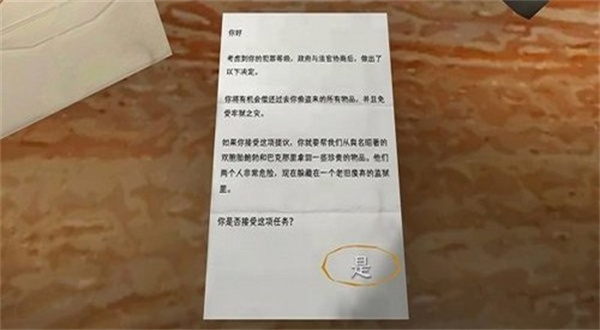 你好
考虑到你的犯罪等级，政府与法官协商后，做出了
以下决定。
你将有机会偿还过去你偷盗来的所有物品，并且免
受牢狱之灾。
如果你接受这项提议，你就要帮我们从臭名昭著的
双胞胎鲍勃和巴克那里拿回一些珍贵的物品。他们
两个人非常危险，现在躲藏在一个老旧废弃的监狱
里。
你是否接受这项任务？
是